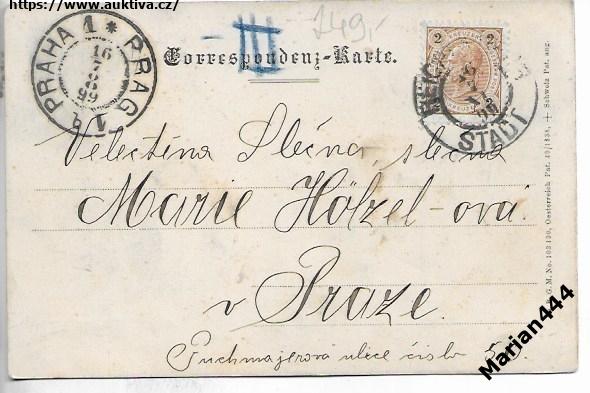 https://www.auktiva.cz/
149,-
III
PRAHA 1 * PRAG 1
16
Correspondenz-Karte.
2 2
STADT
Velectěná Slečna, slečna
Marie Hölzel-ová.
v Praze.
Puchmajerová ulice číslo
D.R.G.M. No. 103190, Oesterreich Pat. 49/1838, + Schweiz Pat. ang.
Marian444